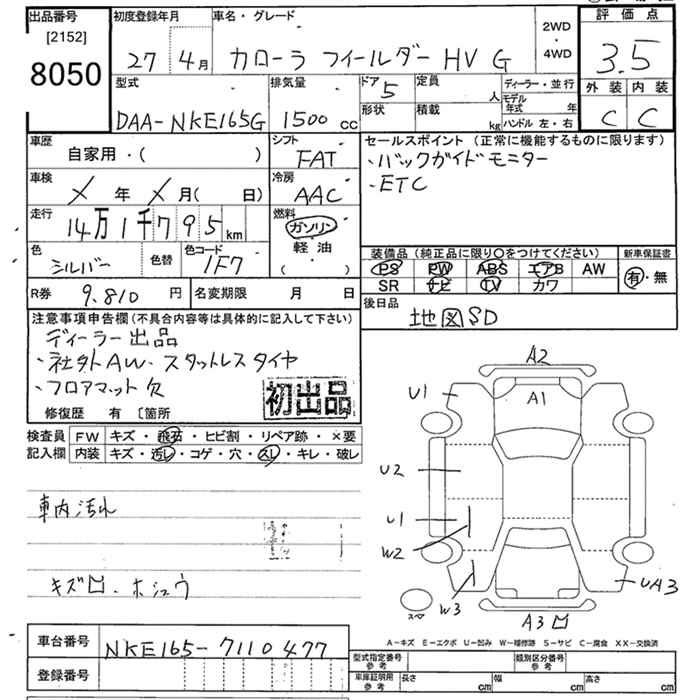 出品番号
[2152]
8050
初度登録年月
27 4月
車名・グレード
カローラ フィールダー HV G
2WD
・
4WD
評価点
3.5
外装 内装
C C
型式
DAA-NKE165G
排気量
1500 cc
ドア 5
定員
人
形状
積載
kg
ディーラー・並行
モデル年式 年
ハンドル 左・右
車歴
自家用・( )
シフト
FAT
車検
メ 年 メ 月( 日)
冷房
AAC
走行
14万1千795 km
燃料
ガソリン
軽油
( )
色
シルバー
色替
色コード
1F7
R券 9,810 円
名変期限 月 日
セールスポイント (正常に機能するものに限ります)
・バックガイドモニター
・ETC
装備品(純正品に限り○をつけてください)
PS PW ABS エアB AW
SR ナビ TV カワ
新車保証書
有・無
後日品
地図SD
注意事項申告欄(不具合内容等は具体的に記入して下さい)
ディーラー出品
・社外AW、スタットレスタイヤ
・フロアマット欠
修復歴 有 〔箇所
初出品
検査員記入欄
FW キズ・飛石・ヒビ割・リペア跡・×要
内装 キズ・汚レ・コゲ・穴・スレ・キレ・破レ
車内汚れ
キズロ・ホシュウ
A2
U1
A1
U2
U1
W2
W3
スペ
UA3
A3ロ
A-キズ E-エクボ U-凹み W-補修跡 S-サビ C-腐食 XX-交換済
車台番号
NKE165-7110477
登録番号
型式指定番号
参考
類別区分番号
参考
車庫証明用
参考
長さ cm
幅 cm
高さ cm